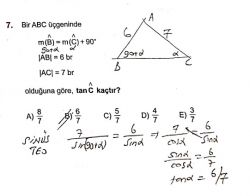 7. Bir ABC üçgeninde
m(B̂) = m(Ĉ) + 90°
90+α α
|AB| = 6 br
|AC| = 7 br
olduğuna göre, tan Ĉ kaçtır?
A) 8/7 B) 6/7 C) 5/7 D) 4/7 E) 3/7
A
6 7
90+α α
B C
SİNÜS
TEO
7/sin(90+α) = 6/sinα ⇒ 7/cosα = 6/sinα
sinα/cosα = 6/7
tanα = 6/7